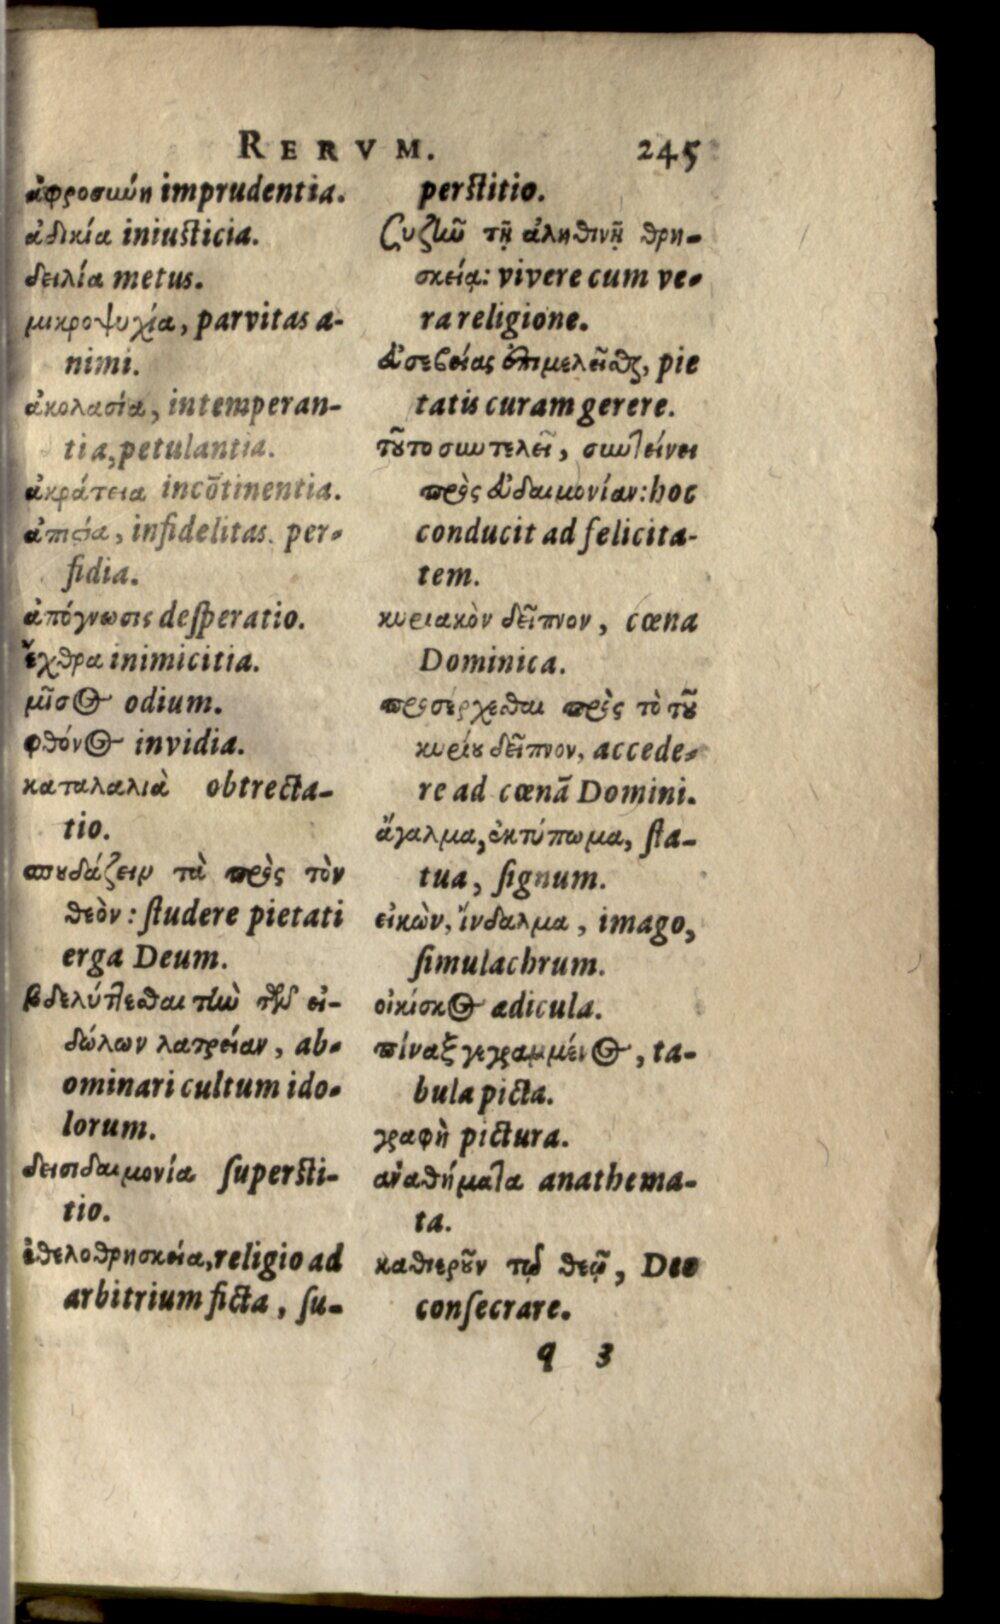 RERVM. 245
ἀφροσύνη imprudentia.
ἀδικία iniusticia.
δειλία metus.
μικροψυχία, parvitas a-
nimi.
ἀκολασία, intemperan-
tia, petulantia.
ἀκράτεια incōtinentia.
ἀπιστία, infidelitas. per-
fidia.
ἀπόγνωσις desperatio.
ἔχθρα inimicitia.
μῖσος odium.
φθόνος invidia.
καταλαλιὰ obtrecta-
tio.
σπουδάζειν τὰ πρὸς τὸν
θεὸν: studere pietati
erga Deum.
βδελύττεσθαι τὴν τῶν εἰ-
δώλων λατρείαν, ab-
ominari cultum ido-
lorum.
δεισιδαιμονία supersti-
tio.
ἐθελοθρησκεία, religio ad
arbitrium ficta, su-
perstitio.
συζῆν τῇ ἀληθινῇ θρη-
σκείᾳ: vivere cum ve-
ra religione.
εὐσεβείας ἐπιμελεῖσθαι, pie
tatis curam gerere.
τοῦτο συντελεῖ, συντείνει
πρὸς εὐδαιμονίαν: hoc
conducit ad felicita-
tem.
κυριακὸν δεῖπνον, cœna
Dominica.
προσέρχεσθαι πρὸς τὸ τοῦ
κυρίου δεῖπνον, accede-
re ad cœnā Domini.
ἄγαλμα, ἐκτύπωμα, sta-
tua, signum.
εἰκὼν, ἴνδαλμα, imago,
simulachrum.
οἰκίσκος ædicula.
πίναξ γεγραμμένος, ta-
bula picta.
γραφὴ pictura.
ἀναθήματα anathema-
ta.
καθιεροῦν τῷ θεῷ, Deo
consecrare.
q 3